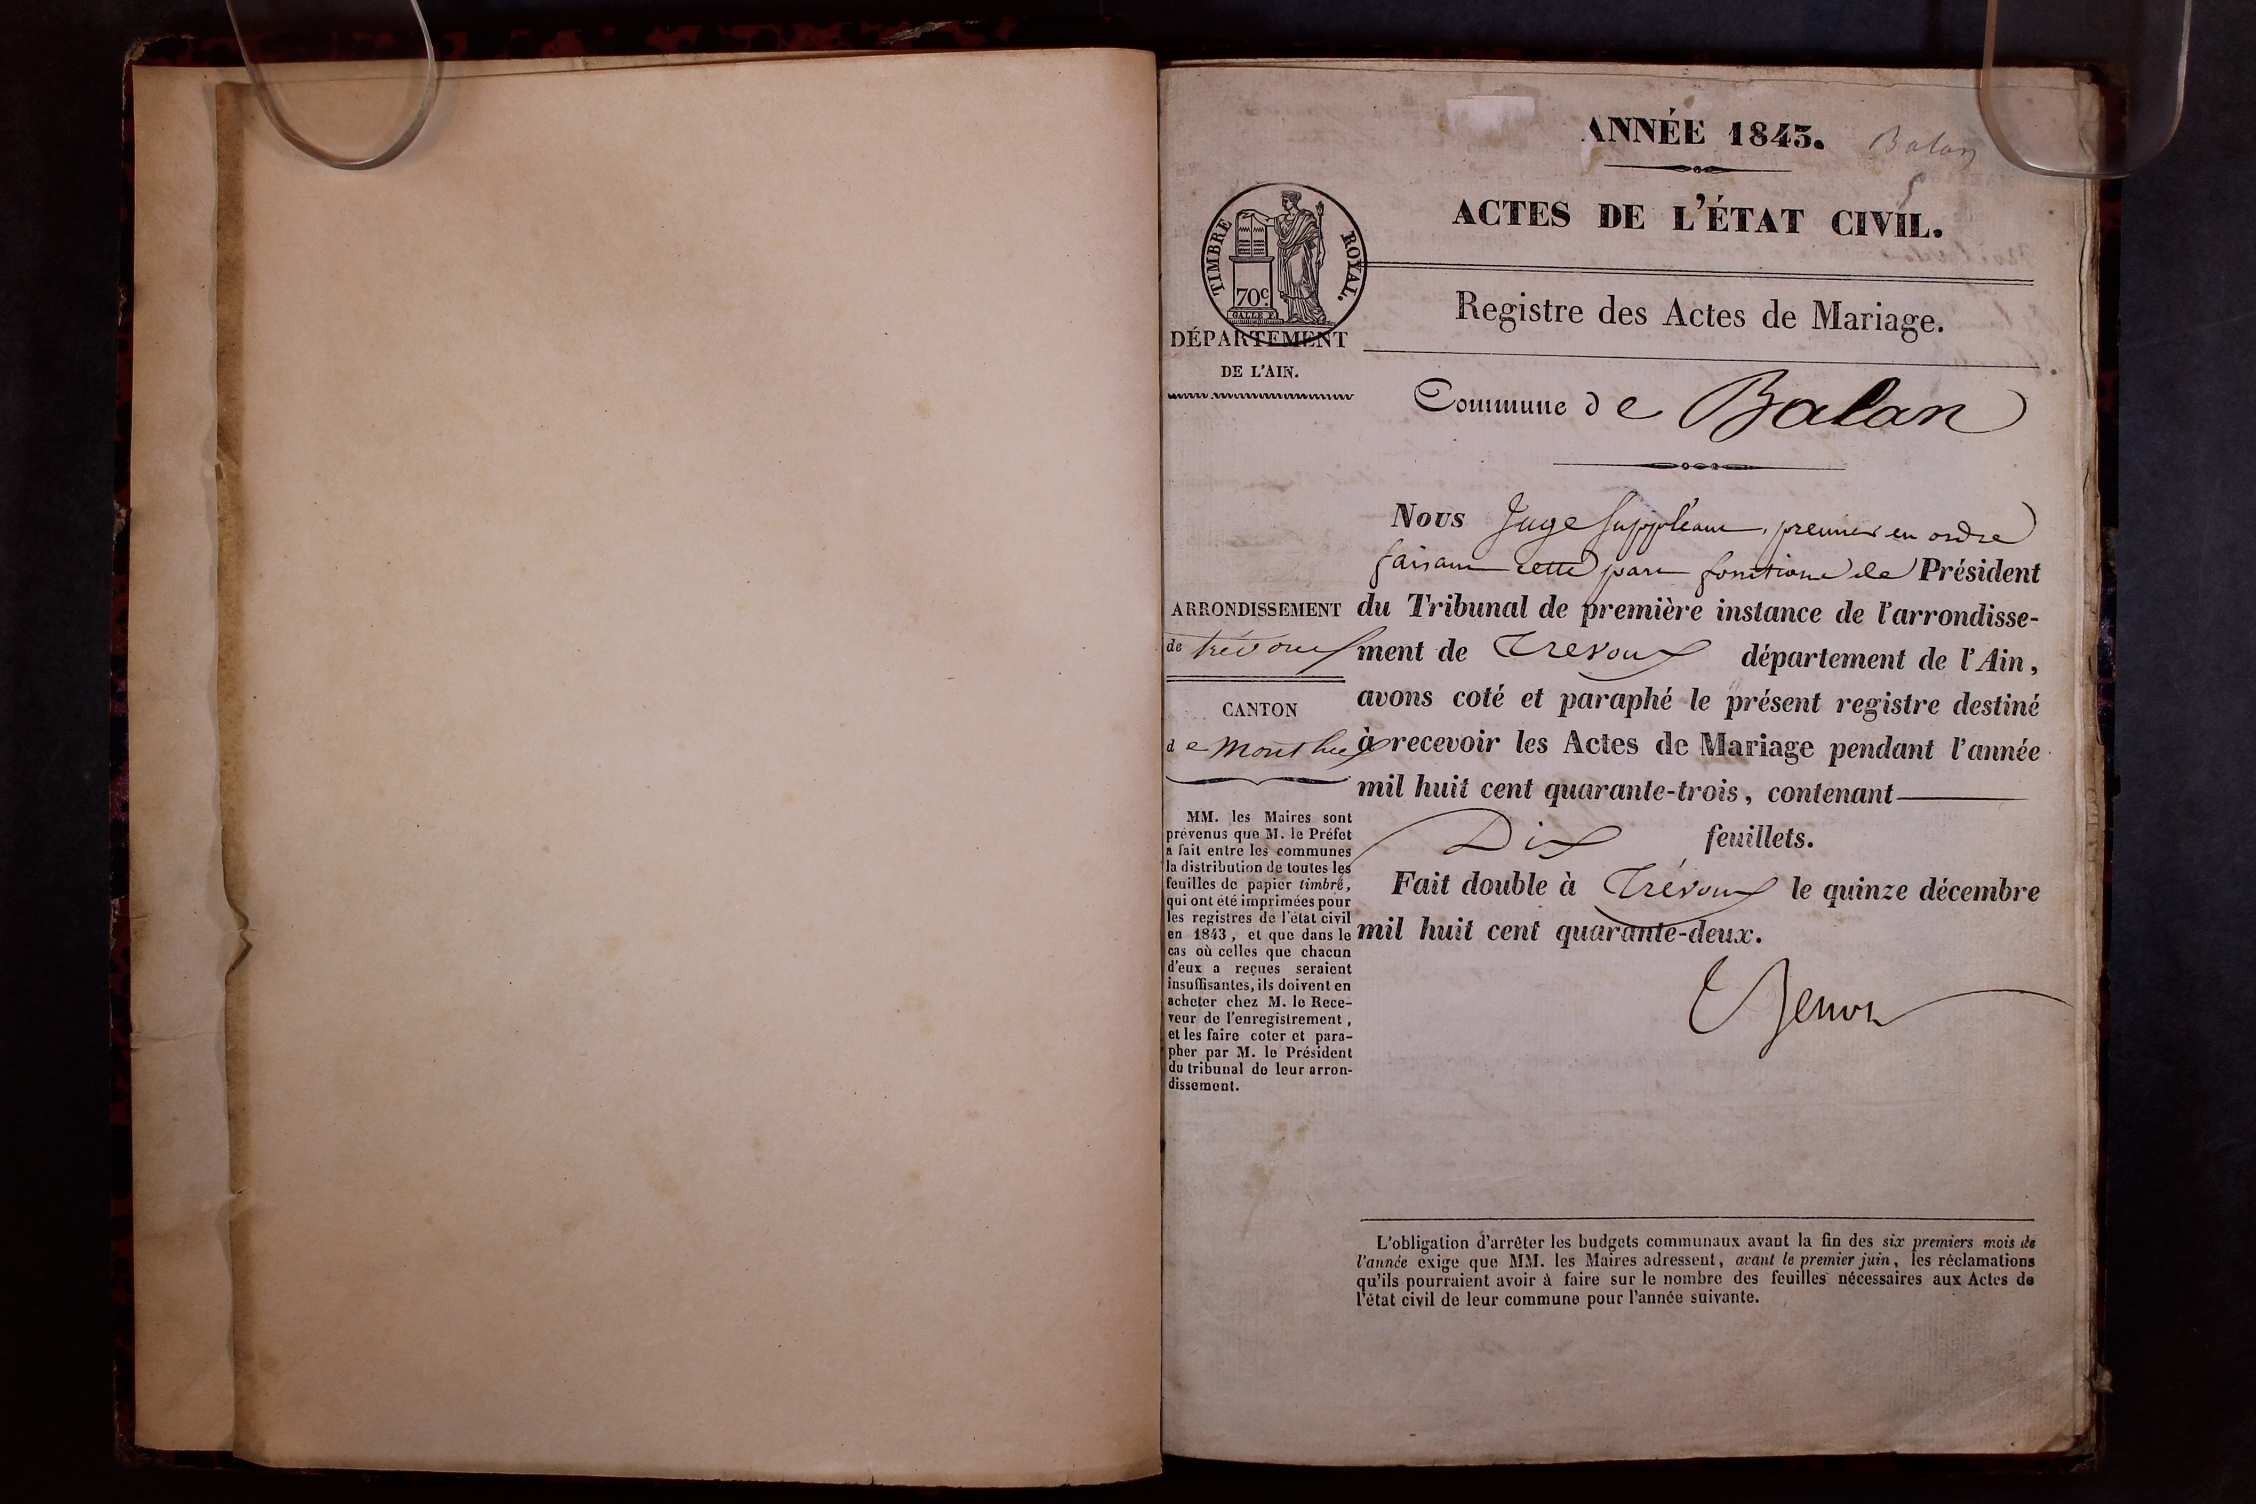 ANNÉE 1843.
Balan
ACTES DE L'ÉTAT CIVIL.
TIMBRE ROYAL.
70c
DÉPARTEMENT
DE L'AIN.
Registre des Actes de Mariage.
Commune de Balan
ARRONDISSEMENT
de trévoux
CANTON
de Montluel
MM. les Maires sont
prévenus que M. le Préfet
a fait entre les communes
la distribution de toutes les
feuilles de papier timbré,
qui ont été imprimées pour
les registres de l'état civil
en 1843, et que dans le
cas où celles que chacun
d'eux a reçues seraient
insuffisantes, ils doivent en
acheter chez M. le Rece-
veur de l'enregistrement,
et les faire coter et para-
pher par M. le Président
du tribunal de leur arron-
dissement.
Nous Juge Suppléant, premier en ordre
faisant cette part fonctions de Président
du Tribunal de première instance de l'arrondisse-
ment de Trevoux département de l'Ain,
avons coté et paraphé le présent registre destiné
à recevoir les Actes de Mariage pendant l'année
mil huit cent quarante-trois, contenant
Dix feuillets.
Fait double à Trévoux le quinze décembre
mil huit cent quarante-deux.
L'obligation d'arrêter les budgets communaux avant la fin des six premiers mois de
l'année exige que MM. les Maires adressent, avant le premier juin, les réclamations
qu'ils pourraient avoir à faire sur le nombre des feuilles nécessaires aux Actes de
l'état civil de leur commune pour l'année suivante.